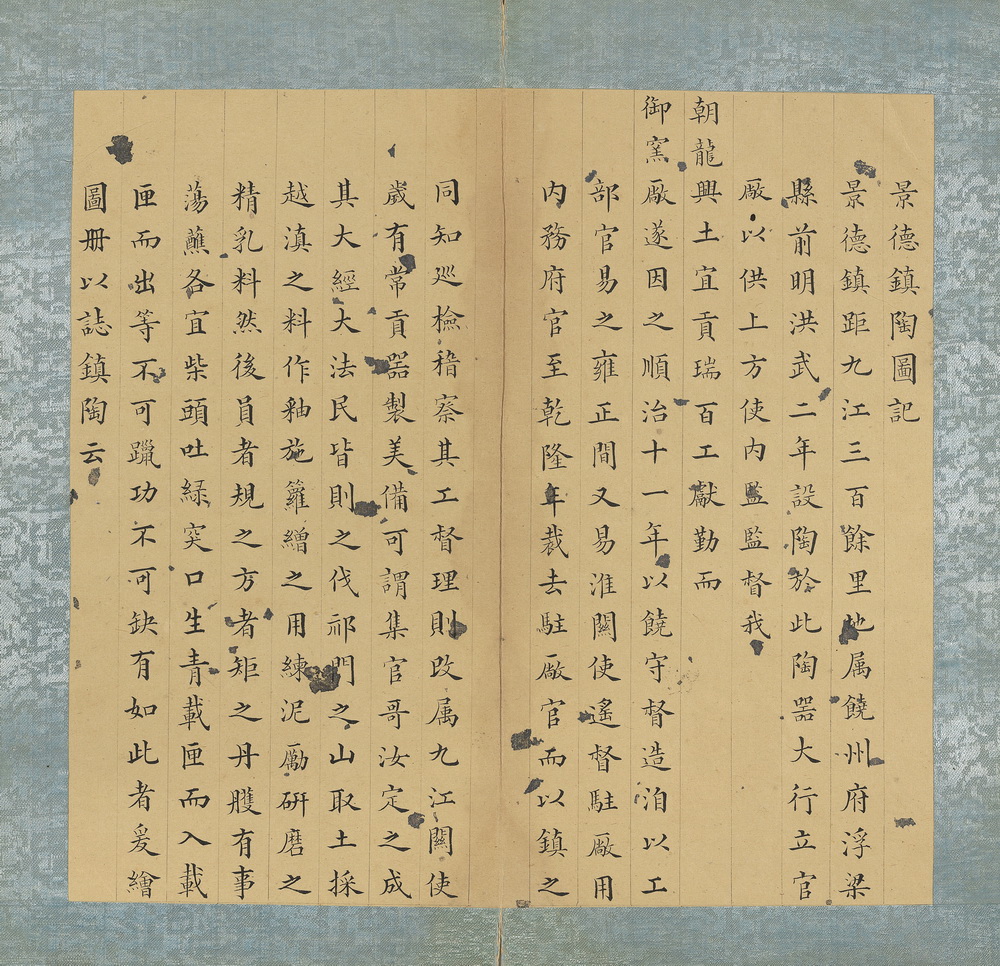 景德鎮陶圖記
景德鎮距九江三百餘里地属饒州府浮梁
縣前明洪武二年設陶於此陶器大行立官
厰以供上方使内監監督我
朝龍興土宜貢瑞百工獻勤而
御窯厰遂因之順治十一年以饒守督造洎以工
部官易之雍正間又易淮關使遙督駐厰用
内務府官至乾隆年裁去駐厰官而以鎮之
同知巡檢稽察其工督理則改属九江關使
歲有常貢器製美備可謂集官哥汝定之成
其大經大法民皆則之伐祁門之山取土採
越滇之料作釉施籮繒之用練泥勵研磨之
精乳料然後員者規之方者矩之丹雘有事
蕩蘸各宜柴頭吐緑突口生青載匣而入載
匣而出等不可躐功不可缺有如此者爰繪
圖册以誌鎮陶云